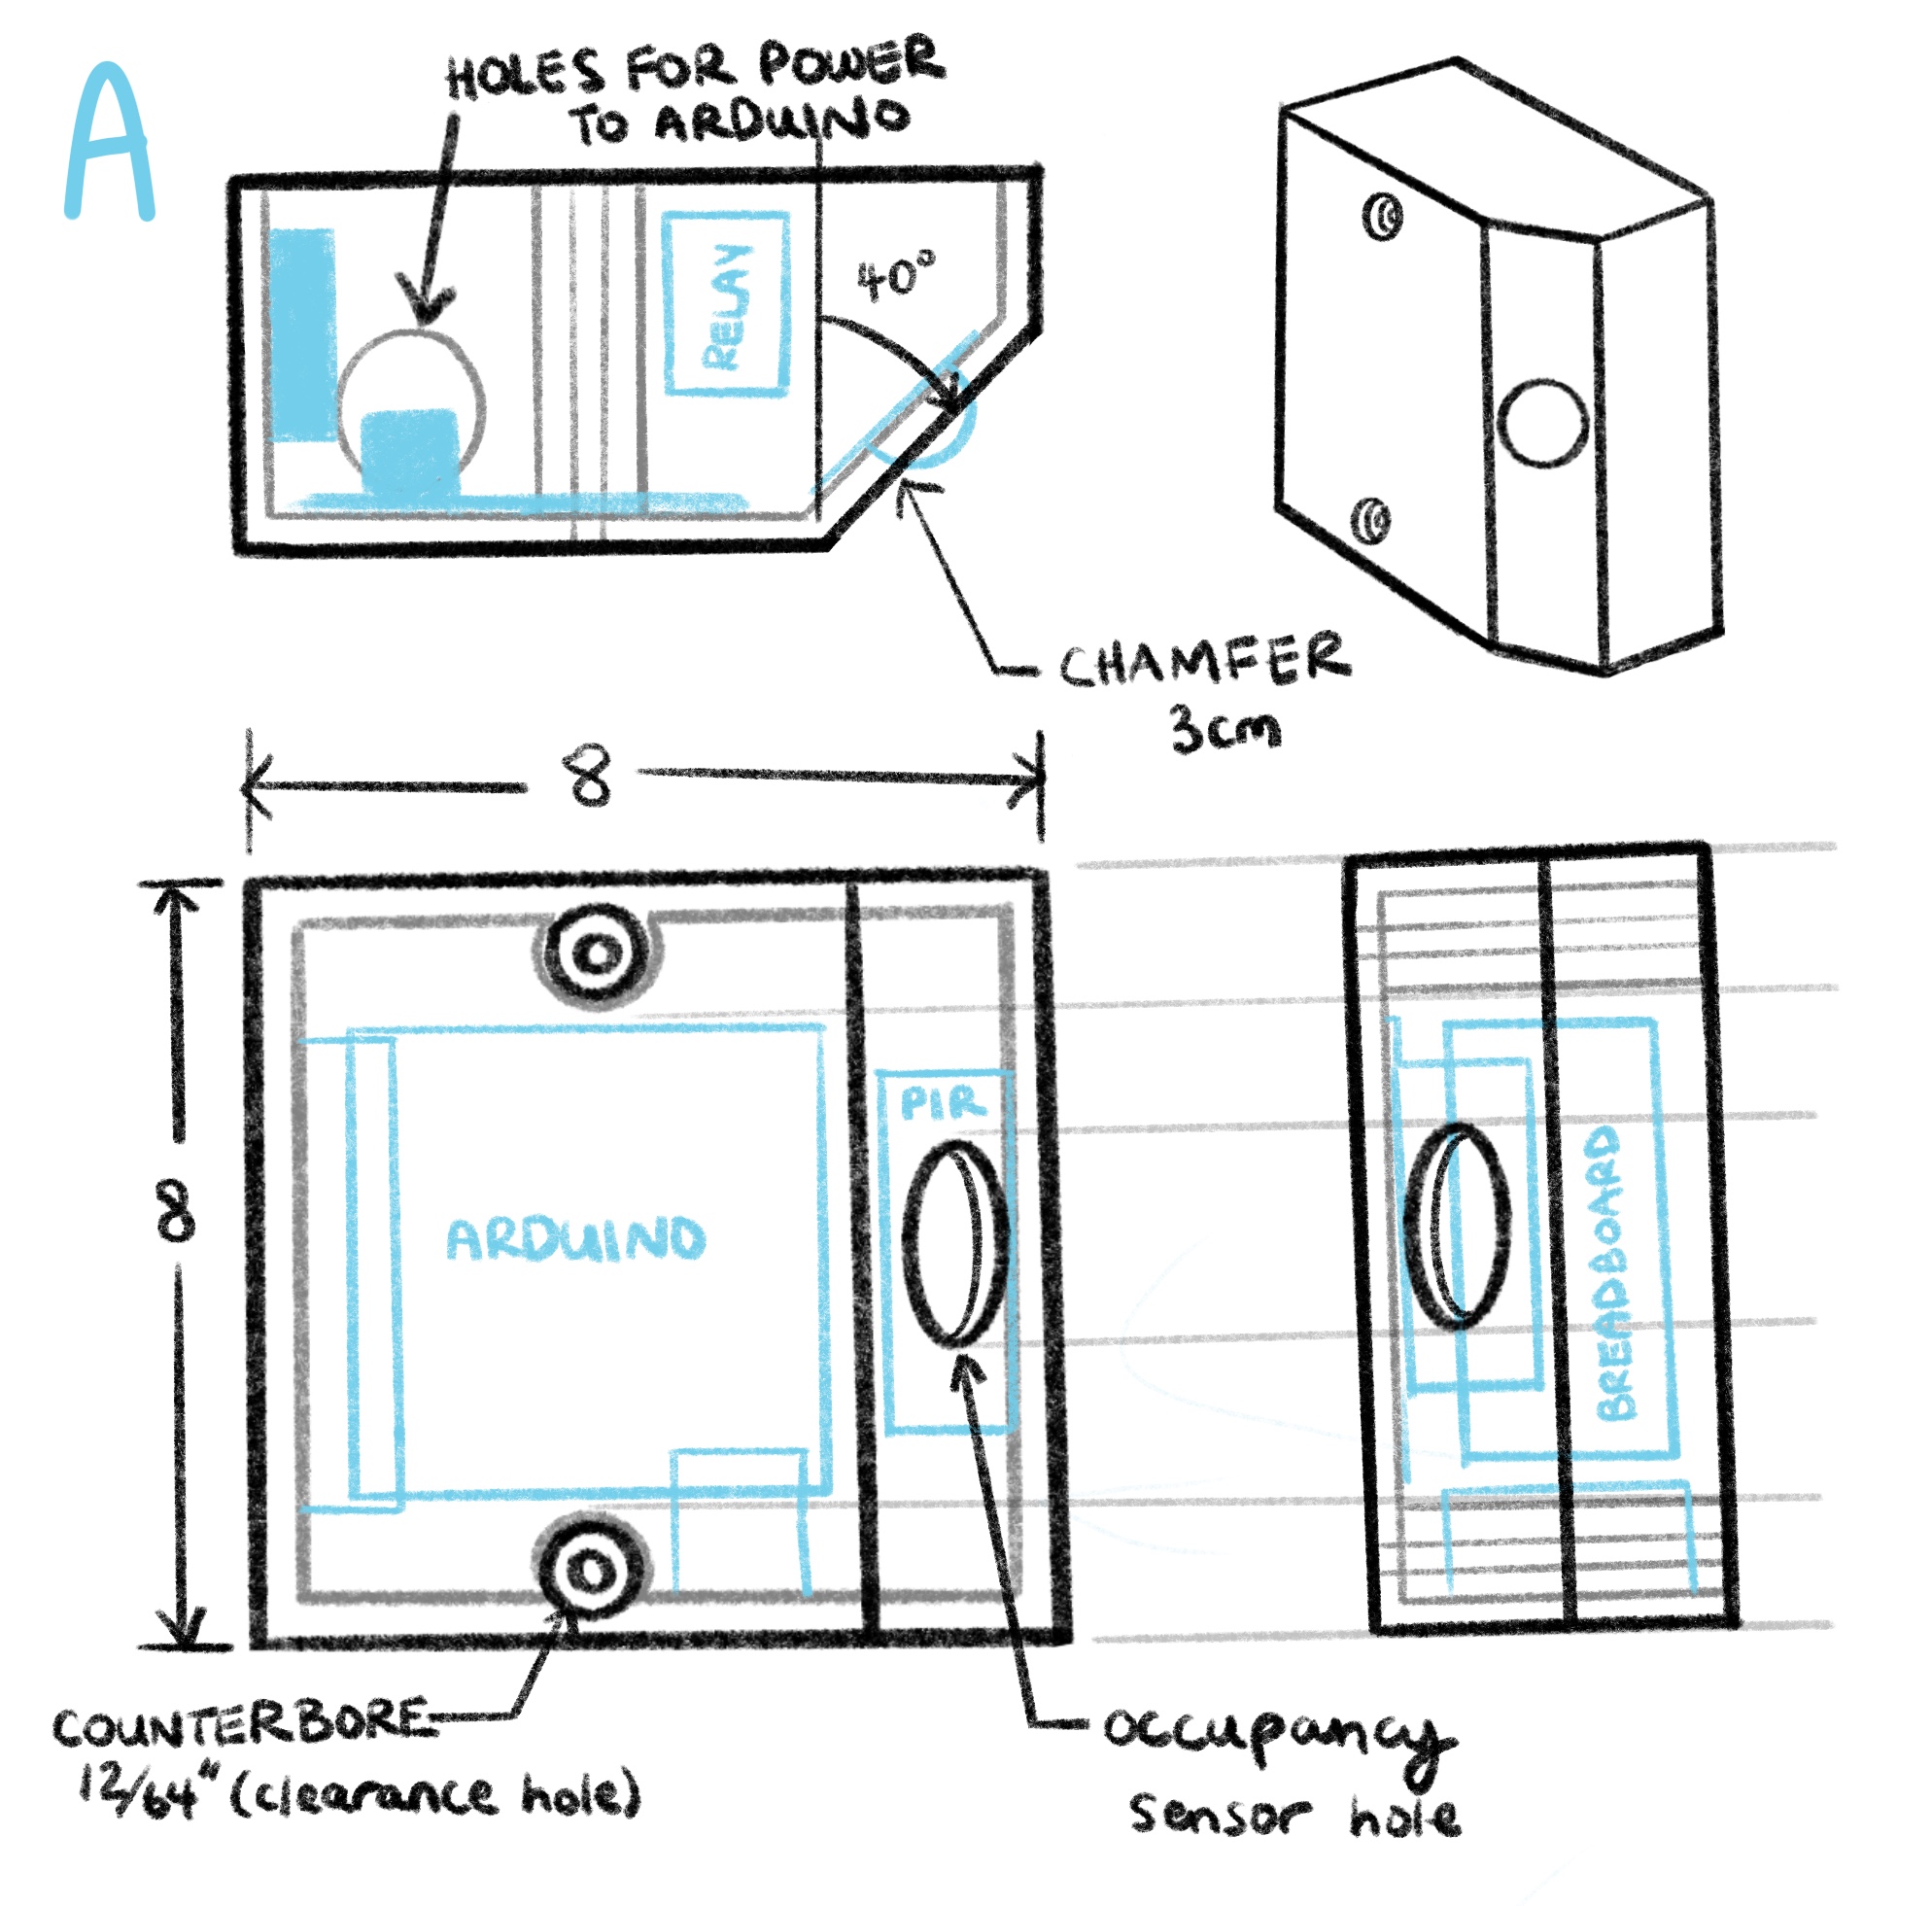 A
HOLES FOR POWER
TO ARDUINO
RELAY
40°
CHAMFER
3cm
8
8
PIR
ARDUINO
BREADBOARD
COUNTERBORE
12/64" (clearance hole)
occupancy
sensor hole